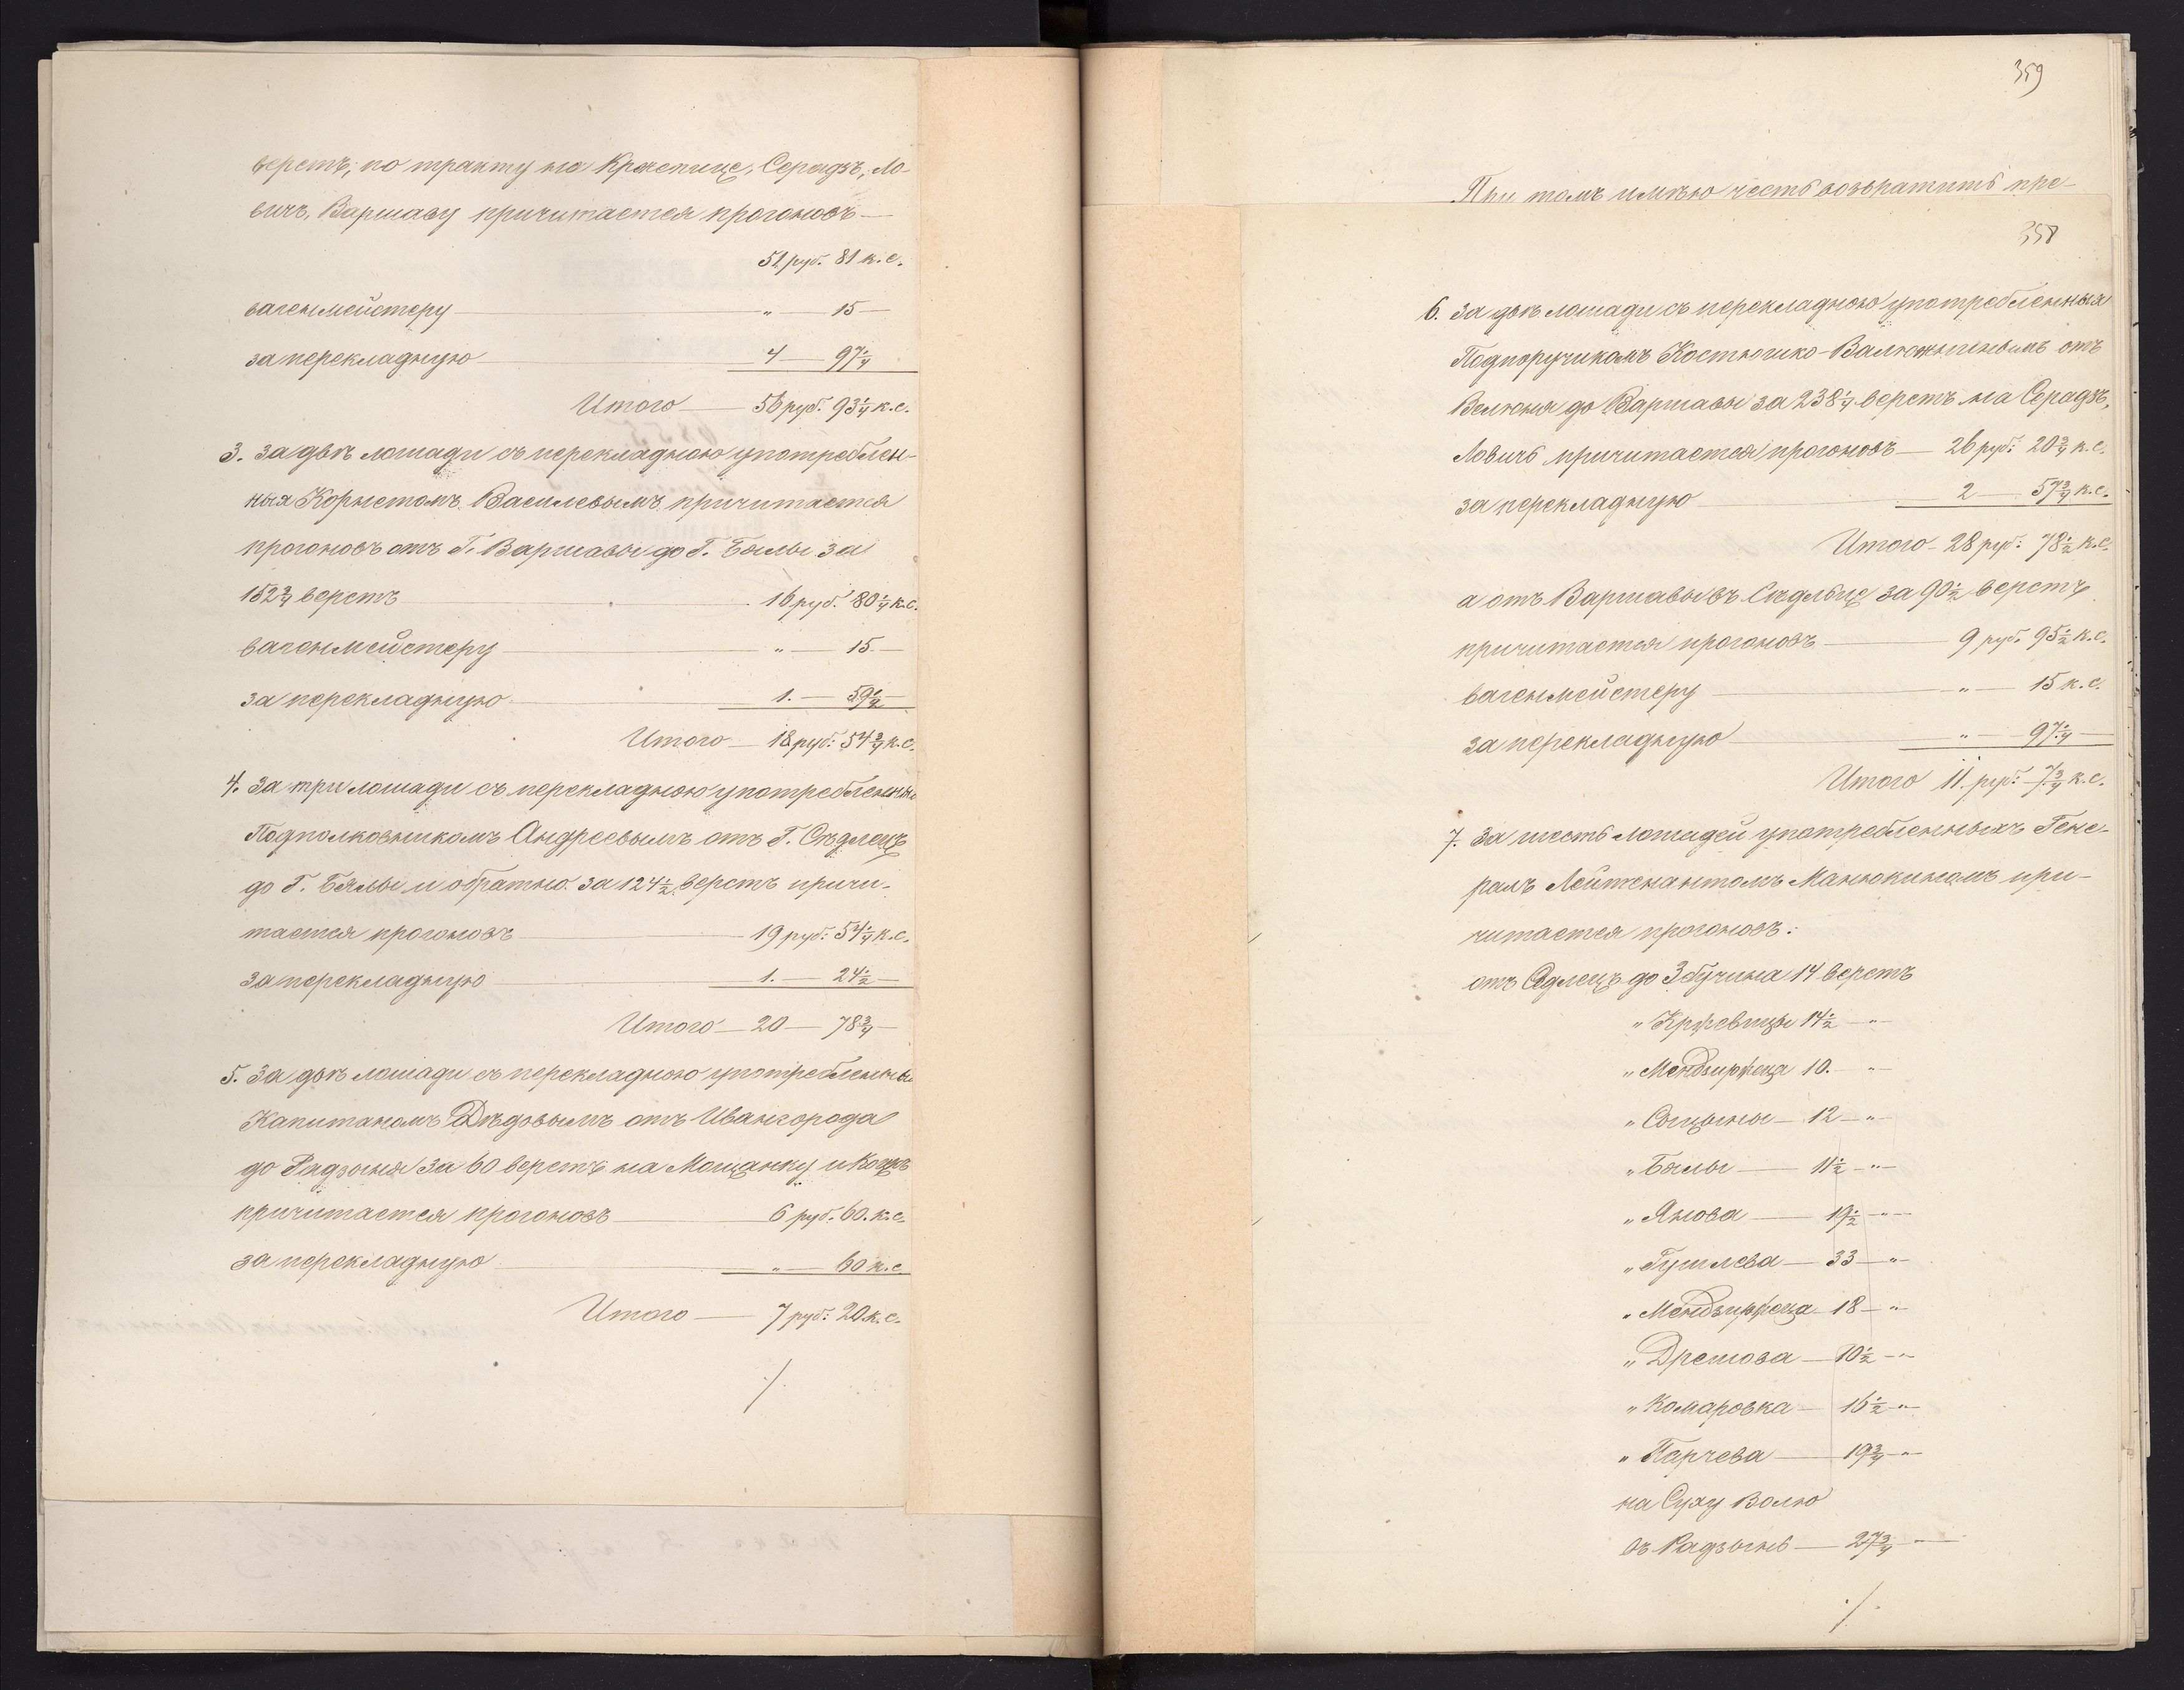 верстъ, по тракту на Крженице, Серадзъ, Ло-
вичъ, Варшаву причитается прогоновъ —
51 руб. 81 к. с.
вагенмейстеру — " — 15 —
за перекладную — 4 — 97 1/4
Итого — 56 руб. 93 1/4 к. с.
3. За двѣ лошади съ перекладною употреблен-
ныя Корнетомъ Василевымъ причитается
прогоновъ отъ Г. Варшавы до Г. Бялы за
152 3/4 верстъ — 16 руб. 80 1/4 к. с.
вагенмейстеру — " — 15 —
за перекладную — 1. — 59 1/2 —
Итого — 18 руб: 54 3/4 к. с.
4. За три лошади съ перекладною употребленныя
Подполковникомъ Андреевымъ отъ Г. Сѣдлецъ
до Г. Бялы и обратно за 124 1/2 верстъ причи-
тается прогоновъ — 19 руб: 54 1/4 к. с.
за перекладную — 1. — 24 1/2 —
Итого — 20 — 78 3/4 —
5. За двѣ лошади съ перекладною употребленныя
Капитаномъ Дѣдовымъ отъ Ивангорода
до Радзыня за 60 верстъ на Мощанку и Коцкъ
причитается прогоновъ — 6 руб. 60. к. с.
за перекладную — " — 60 к. с
Итого — 7 руб: 20 к. с.
./.
359
При томъ имѣю честь возвратить пре-
358
6. За двѣ лошади съ перекладною употребленныя
Подпоручикомъ Костюшко-Валюжиничемъ отъ
Велюня до Варшавы за 238 1/4 верстъ на Серадзъ,
Ловичъ причитается прогоновъ — 26 руб: 20 3/4 к. с.
за перекладную — 2 — 57 3/4 к. с.
Итого — 28 руб: 78 1/2 к. с.
а отъ Варшавы въ Сѣдльце за 90 1/2 верстъ
причитается прогоновъ — 9 руб. 95 1/2 к. с.
вагенмейстеру — " — 15 к. с.
за перекладную — " — 97 1/4 —
Итого 11. руб: 7 3/4 к. с.
7. За шесть лошадей употребленныхъ Гене-
ралъ Лейтенантомъ Манюкинымъ при-
читается прогоновъ:
отъ Сѣдлецъ до Збучина 14 верстъ
" Кржевицы 14 1/2 — "
" Мендзиржеца 10. — "
" Сыцыны — 12 — "
" Бялы — 11 1/2 — "
" Янова — 19 1/2 — "
" Гушлева — 33 — "
" Мендзиржеца — 18 — "
" Дрелова — 10 1/2 — "
" Комаровка — 16 1/2 — "
" Парчева — 19 3/4 — "
на Суху Волю
въ Радзынь — 27 3/4 —
./.